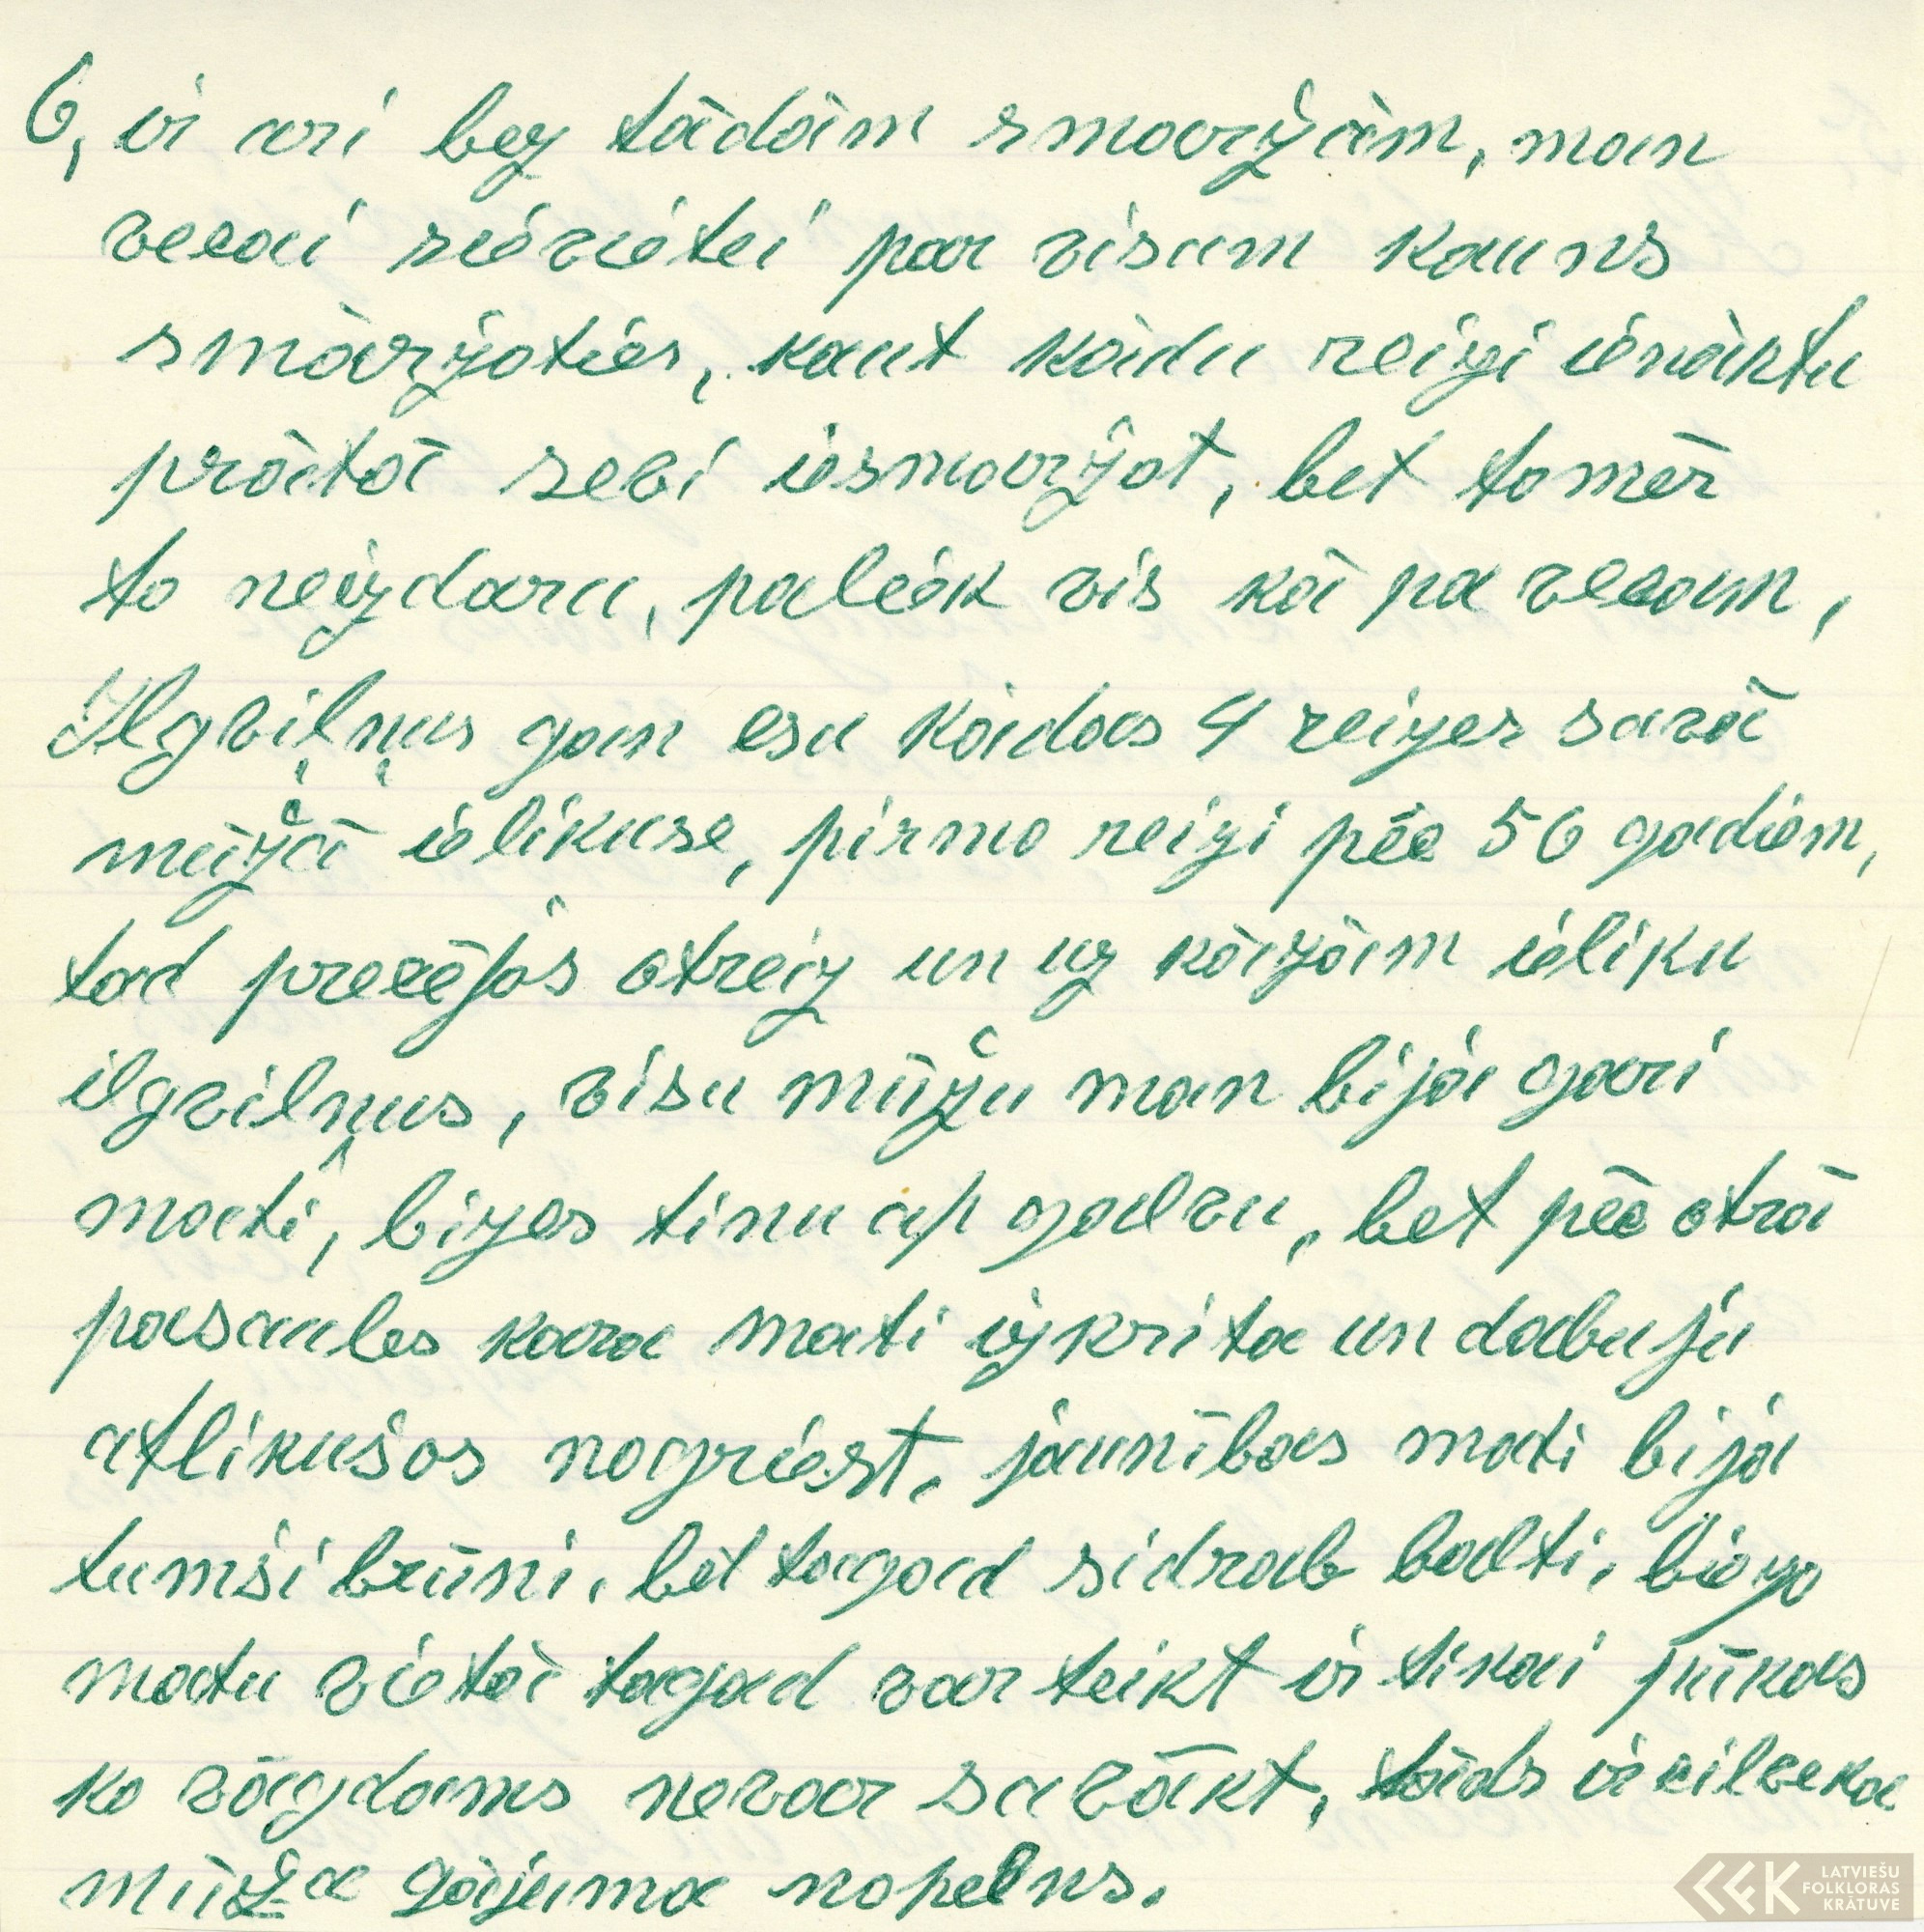 6, ir arī bez tādām smaržām, man
vecai sievietei par visam kauns
smaržoties, kaut kādu reizi ienāktu
prātā sevi iesmaržot, bet tomēr
to neizdaru, paliek vis kā pa vecam,
Ilgviļņus gan esu kādas 4 reizes savā
mūžā ielikuse, pirmo reizi pēc 56 gadiem,
tad precējos otreiz un uz kāzām ieliku
ilgvilņus, visu mūžu man bija gari
mati, bizes tinu ap galvu, bet pēc otrā
pasaules kara mati izkrita un dabuju
atlikušos nogriest, jaunības mati bija
tumši brūni, bet tagad sidrab balti, biezo
matu vietā tagad var teikt ir tikai pūkas
ko vāgdams nevar savākt, tāds ir cilveka
mūža gājuma nopelns.
LATVIEŠU
FOLKLORAS
KRĀTUVE